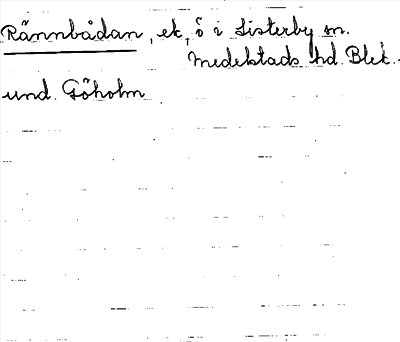 Rännbådan, ek, ö i Listerby sn.
Medelstads hd. Blek.
und. Göholm